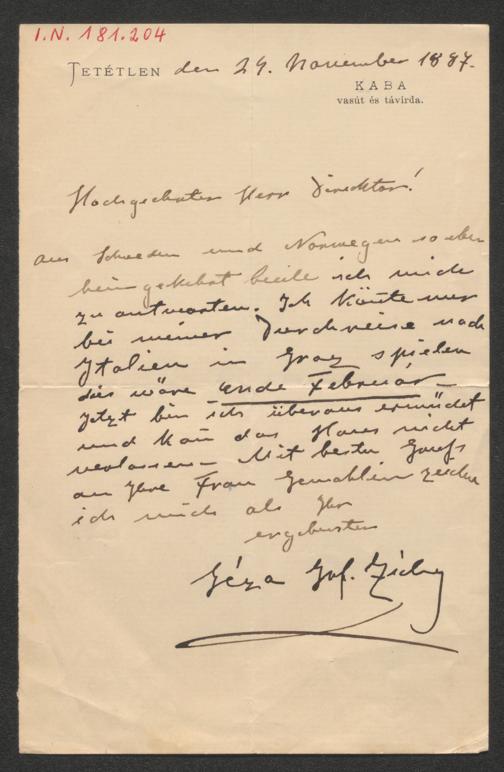 I.N. 181.204
TETÉTLEN den 29. November 1887.
KABA
vasút és távirda.
Hochgeehrter Herr Direktor!
aus Schweden und Norwegen soeben
heimgekehrt beeile ich mich
zu antworten. Ich könte nur
bei meiner Durchreise nach
Italien in Graz spielen
dies wäre Ende Február –
Jetzt bin ich überaus ermüdet
und kan das Haus nicht
verlassen – Mit besten Gruß
an Ihre Frau Gemahlin zeichne
ich mich als Ihr
ergebenster
Géza Grf. Zichy